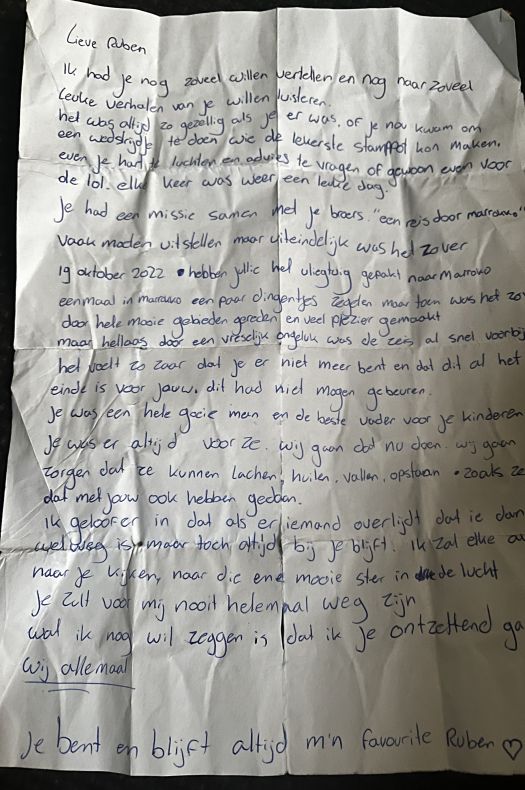 Lieve Ruben
Ik had je nog zoveel willen vertellen en nog naar zoveel
leuke verhalen van je willen luisteren.
het was altijd zo gezellig als je er was, of je nou kwam om
een wedstrijdje te doen wie de lekerste stamppot kon maken.
even je hart te luchten en advies te vragen of gewoon even voor
de lol. elke keer was weer een leuke dag.
Je had een missie samen met je broers. "een reis door marrokko"
Vaak moeten uitstellen maar uiteindelijk was het zover
19 oktober 2022 hebben jullie het vliegtuig gepakt naar Marroko
eenmaal in marrokko een paar dingentjes regelen maar toen was het zo
door hele mooie gebieden gereden en veel plezier gemaakt
maar hellaas door een vreselijk ongeluk was de reis al snel voorbij
het voelt zo raar dat je er niet meer bent en dat dit al het
einde is voor jouw. dit had niet mogen gebeuren.
Je was een hele goeie man en de beste vader voor je kinderen
Je was er altijd voor ze. wij gaan dat nu doen. wij gaan
zorgen dat ze kunnen lachen, huilen, vallen, opstaan zoals ze
dat met jouw ook hebben gedaan.
Ik geloof er in dat als er iemand overlijdt dat ie dan
wel weg is maar toch altijd bij je blijft. Ik zal elke
naar je kijken, naar die ene mooie ster in de lucht
Je zult voor mij nooit helemaal weg zijn
wat ik nog wil zeggen is dat ik je ontzettend ga
wij allemaal
Je bent en blijft altijd m'n favourite Ruben ♡